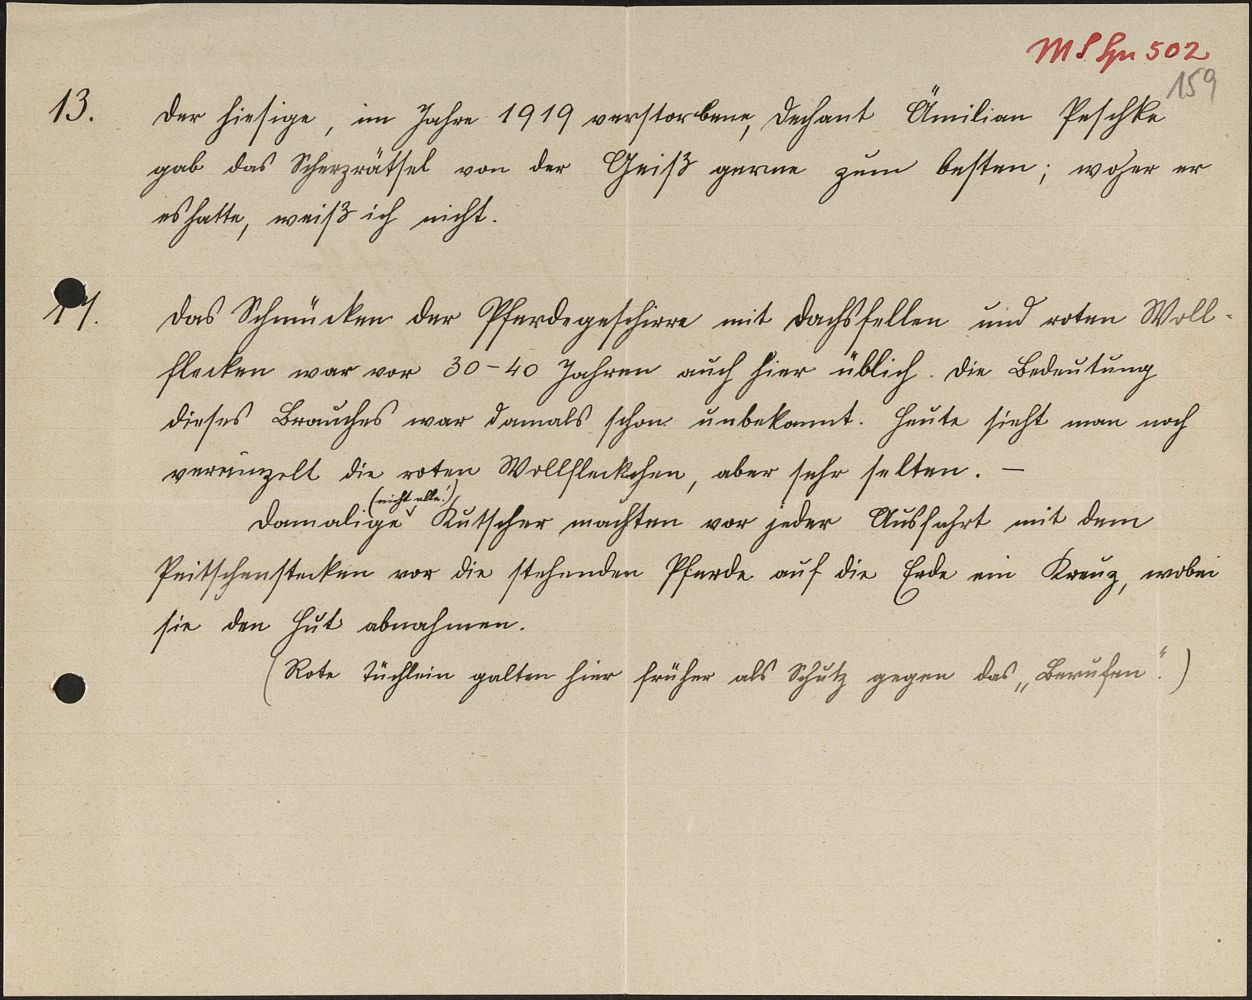 MS Gu 502
159
13. Der hiesige, im Jahre 1919 verstorbene, Dechant Ämilian Peschke
gab das Scherzrätsel von der Geiß gerne zum besten; woher er
es hatte, weiß ich nicht.
14. Das Schmücken der Pferdegeschirre mit Dachsfellen und roten Woll-
flecken war vor 30-40 Jahren auch hier üblich. Die Bedeutung
dieses Brauches war damals schon unbekannt. Heute sieht man noch
vereinzelt die roten Wollfleckchen, aber sehr selten. —
(nicht alle!)
Damalige Kutscher machten vor jeder Ausfahrt mit dem
Peitschenstecken vor die stehenden Pferde auf die Erde ein Kreuz, wobei
sie den Hut abnahmen.
(Rote Tüchlein galten hier früher als Schutz gegen das „Berufen“.)